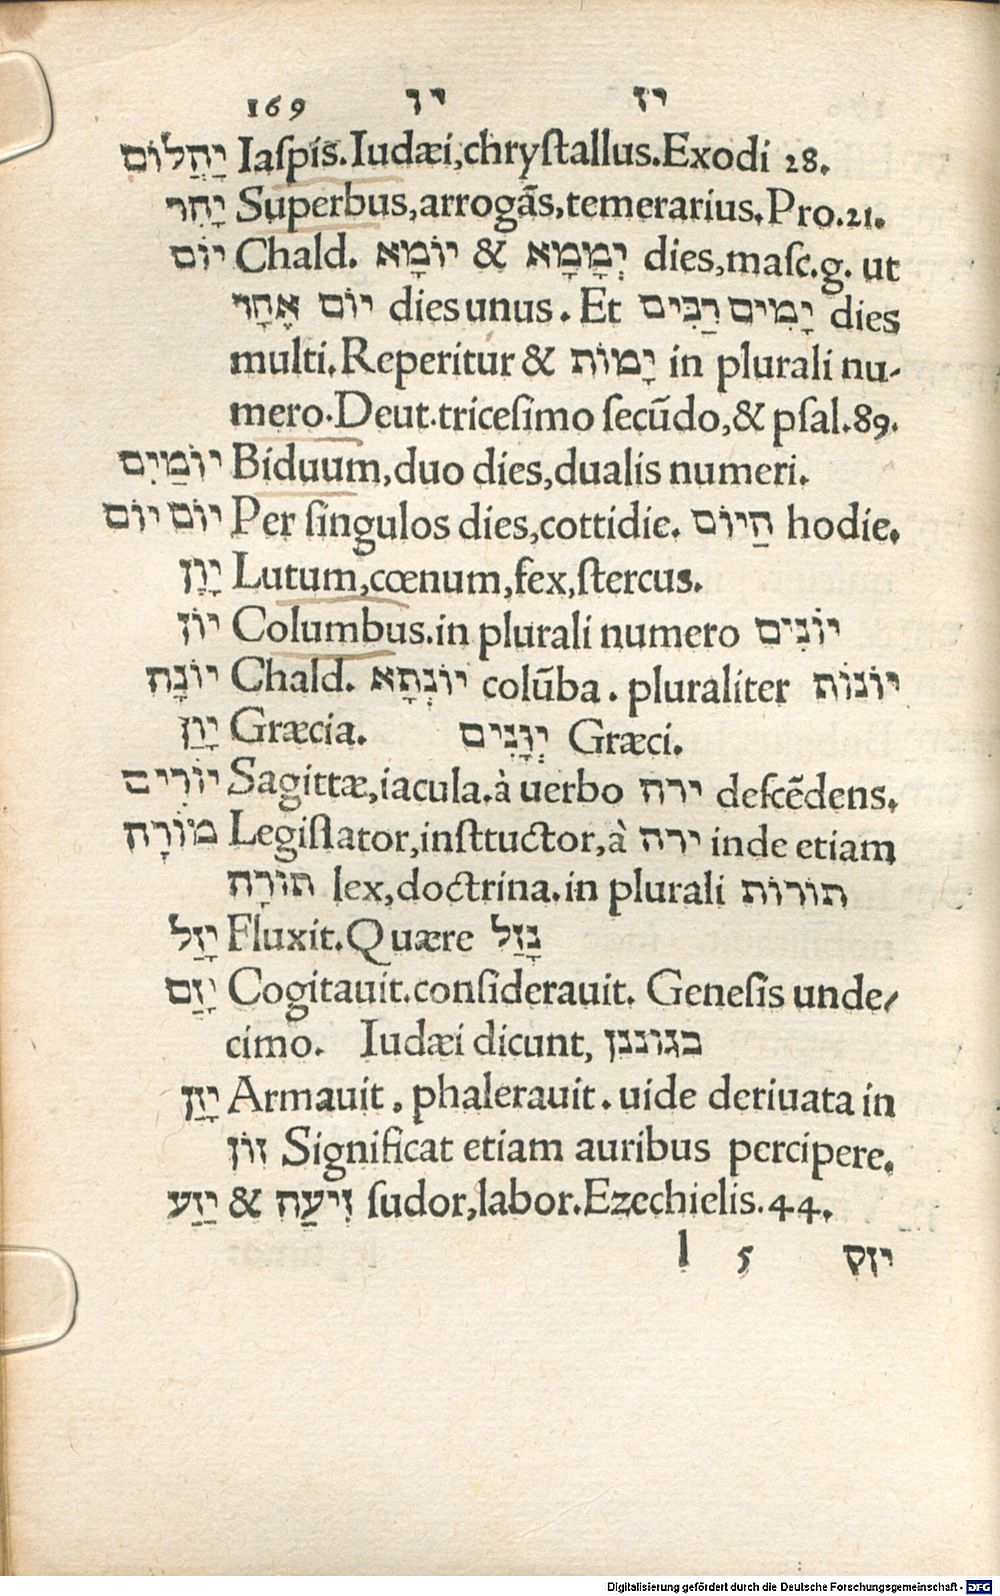 169 יו יז
יַהֲלוֹם Iaſpis.Iudæi,chryſtallus.Exodi 28.
יָהִר Superbus,arrogãs,temerarius.Pro.21.
יוֹם Chald. יוֹמָא & יְמָמָא dies,maſc.g. ut
יוֹם אֶחָד dies unus. Et יָמִים רַבִּים dies
multi.Reperitur & יָמוֹת in plurali nu-
mero.Deut.triceſimo ſecũdo,& pſal.89.
יוֹמַיִם Biduum,duo dies,dualis numeri.
יוֹם יוֹם Per ſingulos dies,cottidie. הַיּוֹם hodie.
יָוֵן Lutum,cœnum,fex,ſtercus.
יוֹן Columbus.in plurali numero יוֹנִים
יוֹנָה Chald. יוֹנְתָא colũba. pluraliter יוֹנוֹת
יָוָן Græcia. יְוָנִים Græci.
יוֹרִים Sagittæ,iacula.à uerbo ירה deſcẽdens.
מוֹרָה Legiſlator,inſttuctor,à ירה inde etiam
תּוֹרָה lex,doctrina.in plurali תורות
יָזַל Fluxit.Quære נָזַל
יָזַם Cogitauit.conſiderauit. Geneſis unde-
cimo. Iudæi dicunt,
יָזַן Armauit. phalerauit. uide deriuata in
זון Significat etiam auribus percipere.
יַזַע & זֵיעַה ſudor,labor.Ezechielis.44.
l 5 יזק
Digitalisierung gefördert durch die Deutsche Forschungsgemeinschaft - DFG